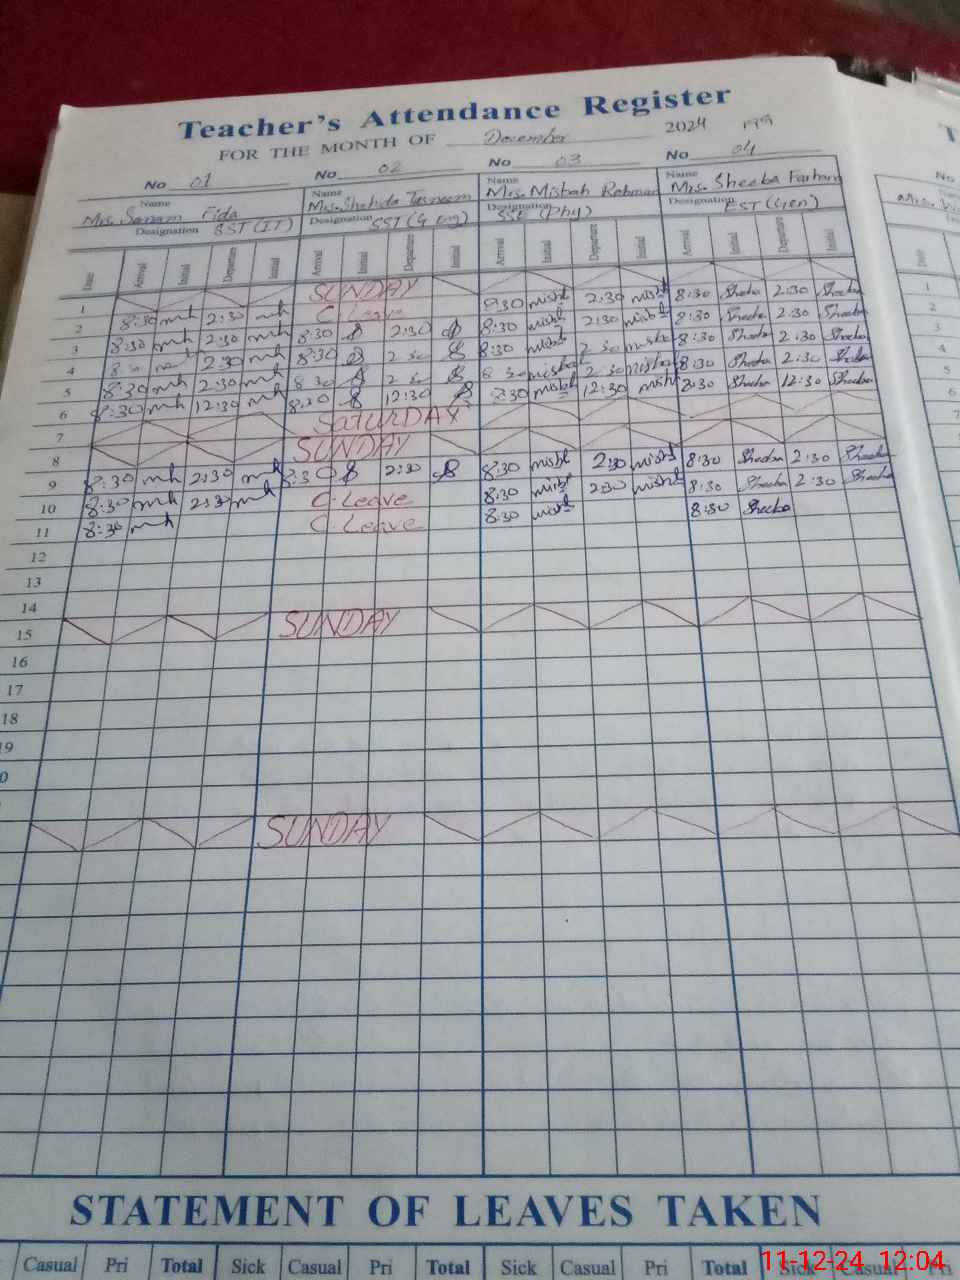 Teacher's Attendance Register
FOR THE MONTH OF December 2024 199
No 01 No 02 No 03 No 04 No
Name Name Name Name
Mrs. Sanam Fida Mrs. Shahida Tasneem Mrs. Misbah Rehman Mrs. Sheeba Farhan
Designation SST (IT) Designation SST (G Eng) Designation SSE (Phy) Designation EST (Gen)
Date Arrival Initial Departure Initial Arrival Initial Departure Initial Arrival Initial Departure Initial Arrival Initial Departure Initial Date
1 SUNDAY 1
2 8:30 mh 2:30 mh C-Leave 8:30 misbh 2:30 misbh 8:30 Sheeba 2:30 Sheeba 2
3 8:30 mh 2:30 mh 8:30 2:30 8:30 misbh 2:30 misbh 8:30 Sheeba 2:30 Sheeba 3
4 2:30 mh 8:30 2:30 8:30 misbh 2:30 misbh 8:30 Sheeba 2:30 Sheeba 4
5 8:30 mh 2:30 mh 8:30 2:30 8:30 misbh 2:30 misbh 8:30 Sheeba 2:30 Sheeba 5
6 8:30 mh 12:30 mh 8:30 12:30 8:30 misbh 12:30 misbh 8:30 Sheeba 12:30 Sheeba 6
7 SATURDAY 7
8 SUNDAY
9 8:30 mh 2:30 mh 8:30 2:30 8:30 misbh 2:30 misbh 8:30 Sheeba 2:30 Sheeba
10 8:30 mh 2:30 mh C-Leave 8:30 misbh 2:30 misbh 8:30 Sheeba 2:30 Sheeba
11 8:30 mh C-Leave 8:30 misbh 8:30 Sheeba
12
13
14
15 SUNDAY
16
17
18
19
SUNDAY
STATEMENT OF LEAVES TAKEN
Casual Pri Total Sick Casual Pri Total Sick Casual Pri Total Sick Casual Pri
11-12-24 12:04